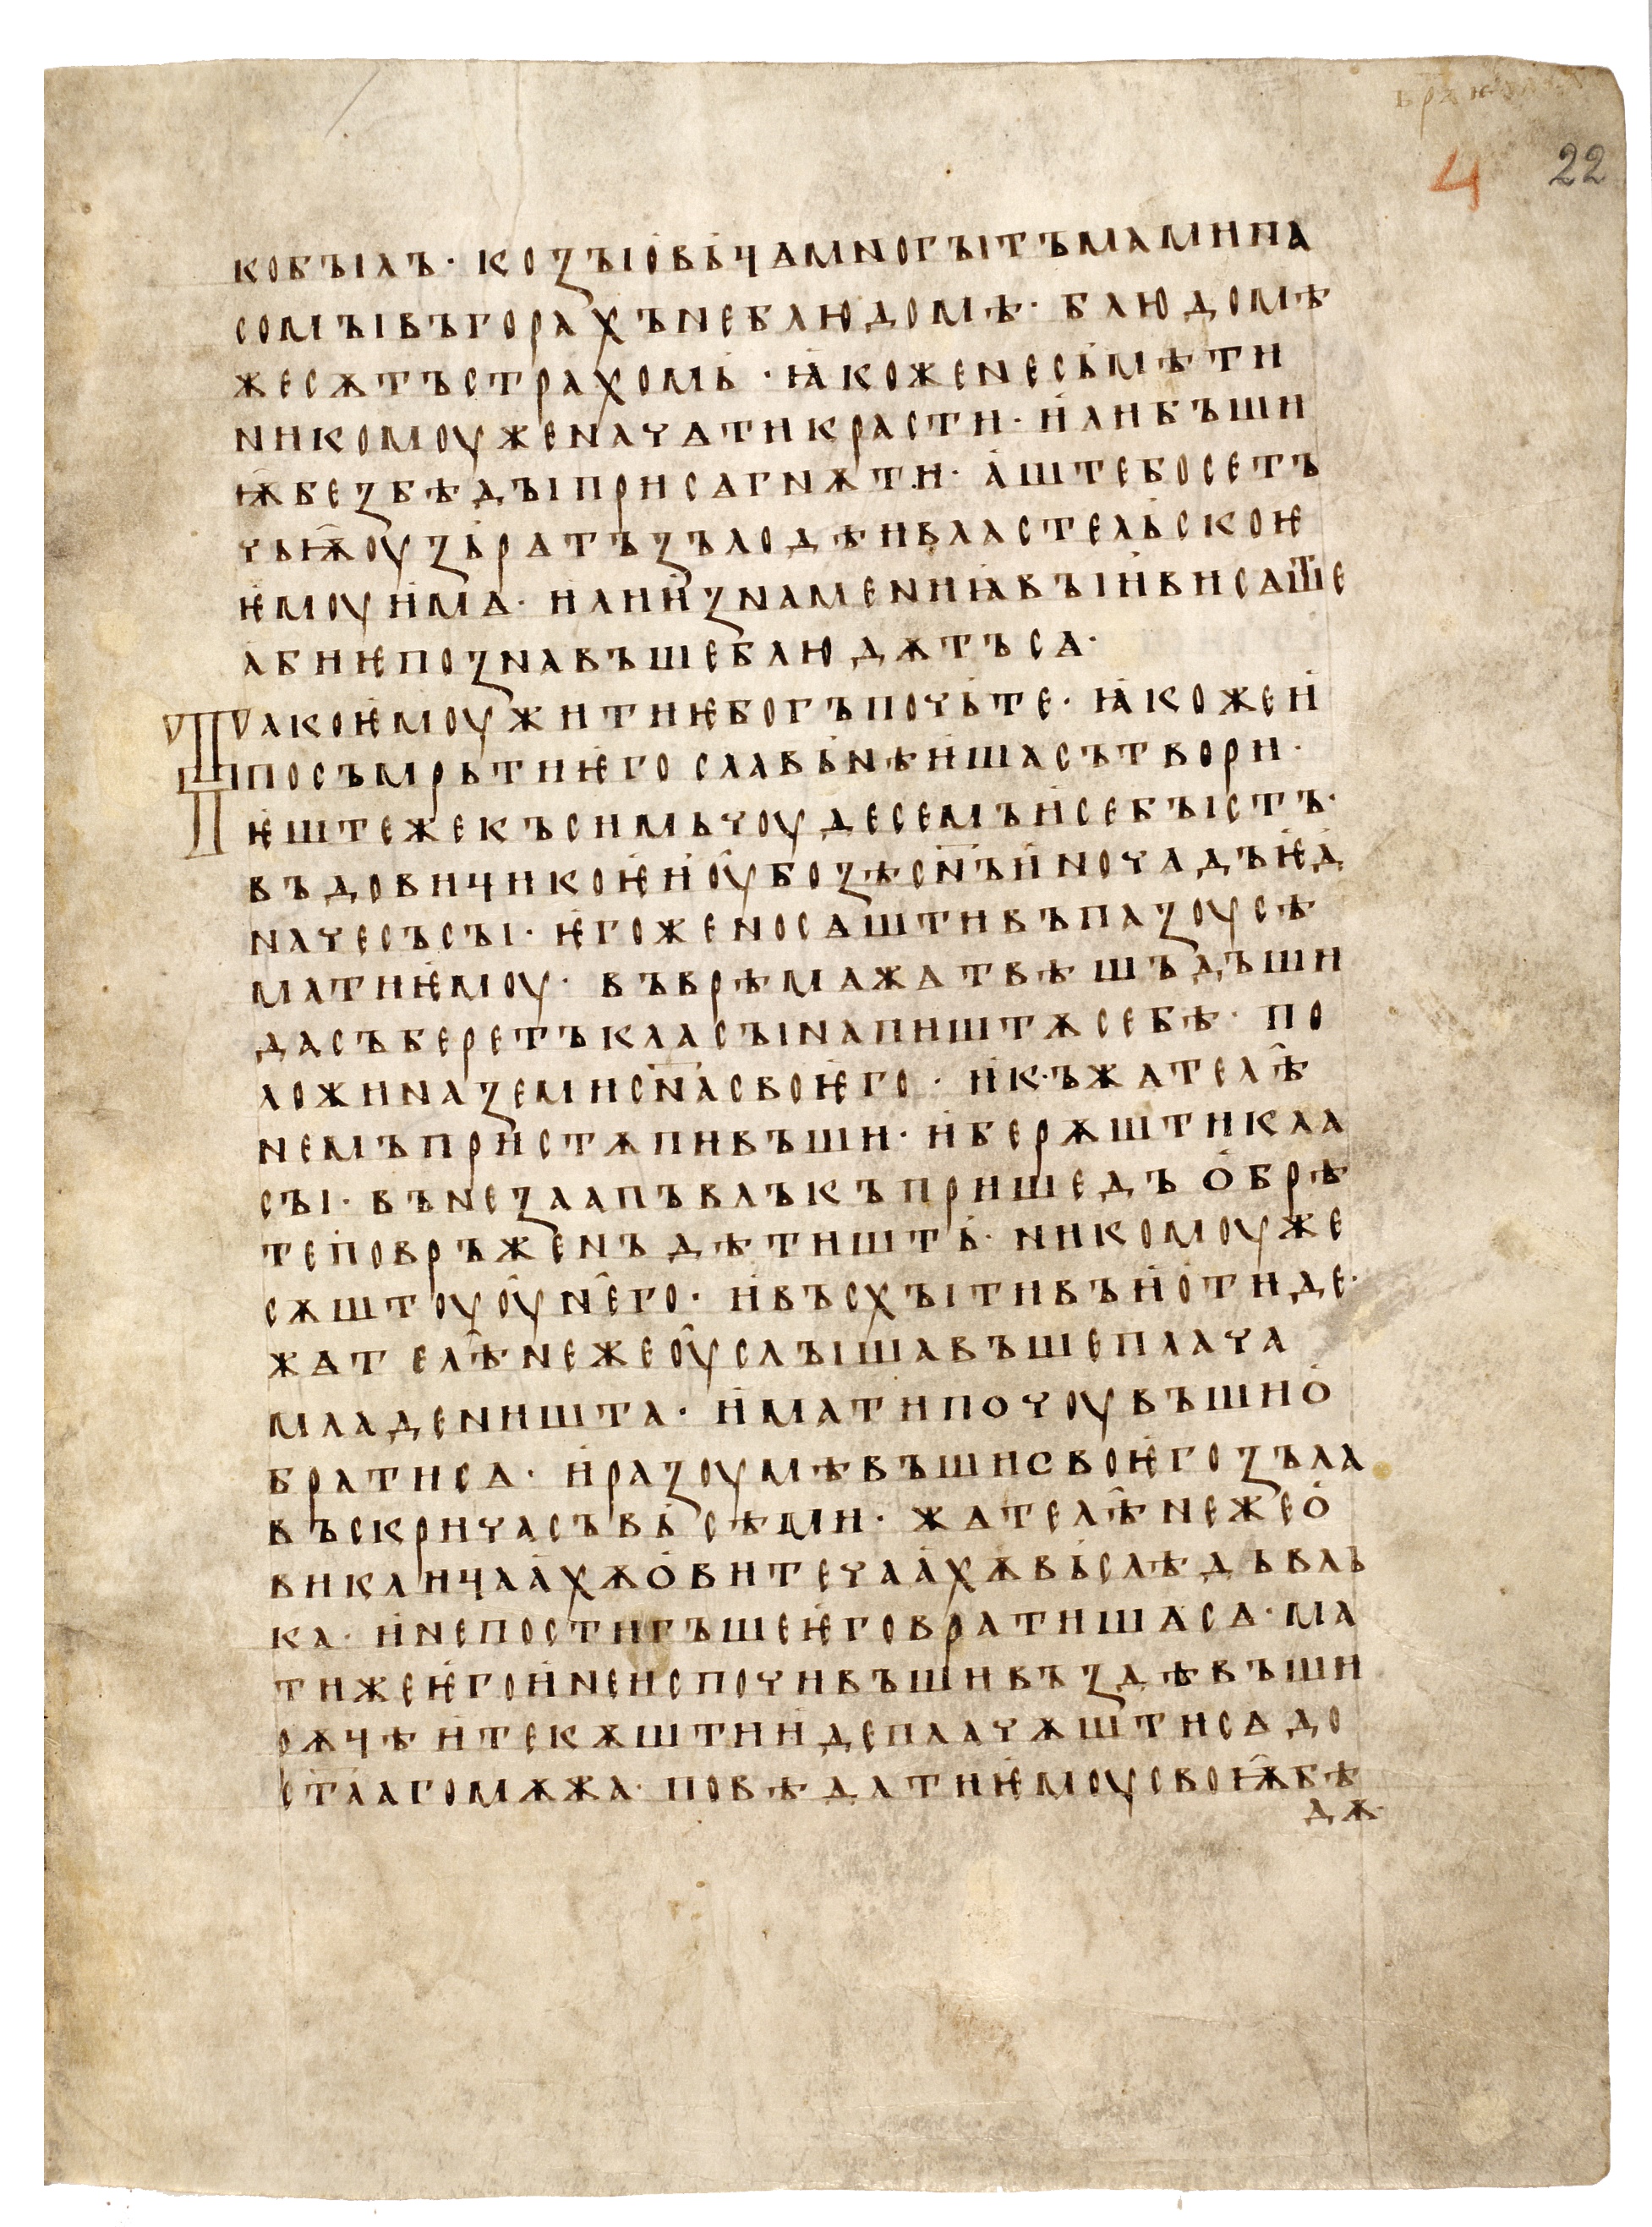 4 22
кобꙑлъ· коꙁꙑ овьцѧ многꙑ тъмами па
сомꙑ въ горахъ не блюдомѣ· блюдомѣ
же сѫтъ страхомь· ꙗкоже не съмѣти
никомоуже начѧти красти· или бъши
ѭ без бѣдꙑ присѧгнѫти· аште бо сетъ
чьѭ оуꙁьрѧтъ ꙁълодѣи властельскоѥ
ѥмоу имѧ· или ꙁнамениꙗ вꙑи висѧште
абиѥ поꙁнавъше блюдѫтъ сѧ·
Тако ѥмоу житиѥ богъ почьте· ꙗкоже и
по съмрьти ѥго славьнѣиша сътвори·
ѥште же къ симь чоудесемъ и се бꙑстъ·
въдовици коѥи оубоꙁѣ сн҃ъ иночѧдъ ѥд
начесъ сꙑ· ѥгоже носѧшти въ паꙁоусѣ
мати ѥмоу· въ врѣмѧ жѧтвѣ шъдъши
да съберетъ класꙑ на пиштѫ себѣ· по
ложи на ꙁеми сн҃а своѥго· и къ жѧтелѣ
немъ пристѫпивъши· и берѫшти кла
сꙑ· вънеꙁаапъ влъкъ пришедъ обрѣ
те повръженъ дѣтишть· никомоуже
сѫштоу оу него· и въсхꙑтивъ и отиде·
жѧтелѣне же оуслꙑшавъше плача
младеништа· и мати почоувъши о
брати сѧ· и раꙁоумѣвъши своѥго ꙁъла
въскрича съ вьсѣми· жѧтелѣне же о
ви клицаахѫ ови течаахѫ вьслѣдъ влъ
ка· и не постигъше ѥго вратишѧ сѧ· ма
ти же ѥго и не испочивъши въꙁдѣвъши
рѫцѣ и текѫшти иде плачѫшти сѧ до
ст҃ааго мѫжа· повѣдати ѥмоу своѭ бѣ
дѫ·